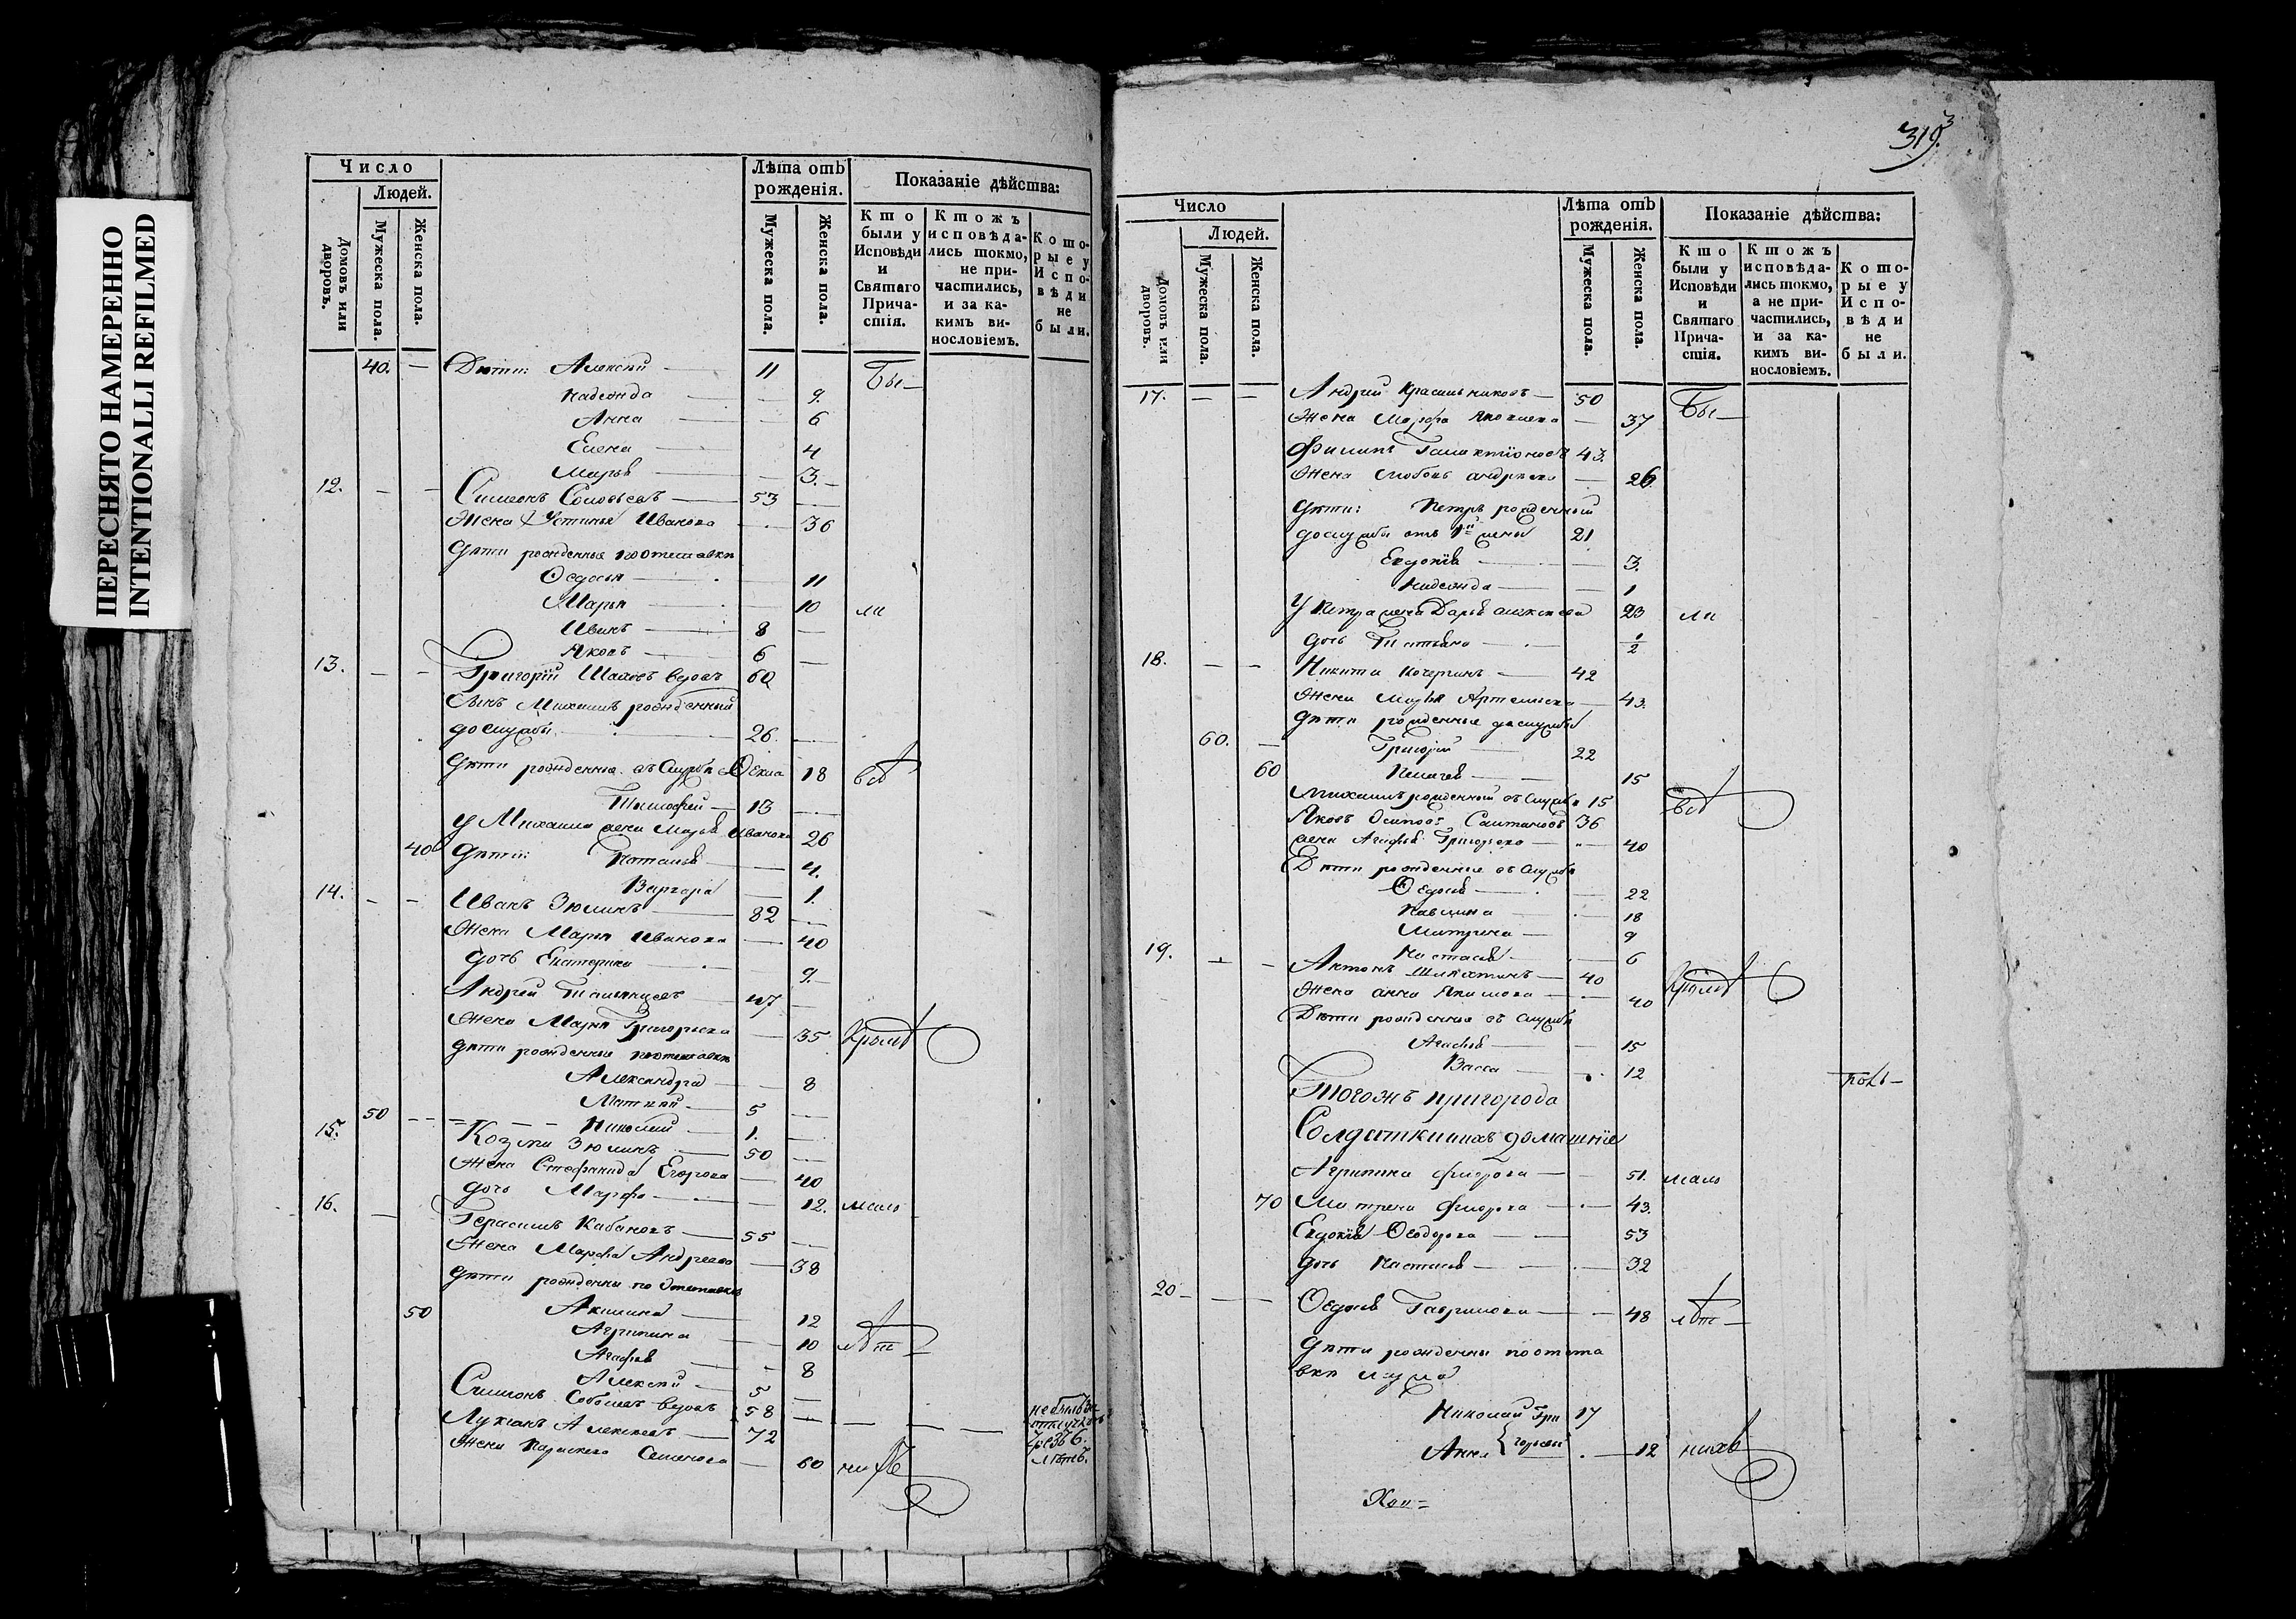 ПЕРЕСНЯТО НАМЕРЕННО
INTENTIONALLI REFILMED
Число
Людей.
Домовъ или дворовъ.
Мужеска пола.
Женска пола.
Лѣта отъ рожденія.
Мужеска пола.
Женска пола.
Показаніе дѣйства:
Кто были у Исповѣди и Святаго Причастія.
Ктожъ исповѣдались токмо, не причастились, и за какимъ винословіемъ.
Которые у Исповѣди не были.
40. — Дѣти: Алексѣй — 11 Бы—
Надежда — 9.
Анна — 6
Елена — 4
Марья — 3.
12. — — Симеонъ Соловьевъ — 53
Жена Устинья Иванова — 36
Дѣти рожденныя по отставки
Ѳедосья — 11
Марья — 10 ли
Иванъ — 8 —
Яковъ — 6 —
13. — — Григорій вдовъ 60
Сынъ Михаилъ рожденный
до службы 26.
Дѣти рожденные въ службѣ Ѳекла 18 всѣ
Тимофей — 13
У Михаила жена Марья Иванова 26
40 Дѣти: Наталья — 4.
Варвара — 1.
14. — — Иванъ Зюлинъ — 82
Жена Марья Иванова — 40
дочь Екатерина — 9
Андрей — 47
Жена Марья Григорьева — 35 Кромѣ
дѣти рожденные по отставки
Александра — 8
Матвей — 5
50 — Николай — 1.
15. Козма Зюлинъ — 50
Жена Стефанида Егорова — 40
дочь Марфа — 12. мало
16. — Герасимъ Кабановъ — 55
Жена Марфа Андреева — 38
Дѣти рожденны по отставки
50 Акилина — 12
Агрипина — 10 лѣт
Агафья — 8
Алексѣй — 5
Симеонъ Соболевъ вдовъ 58 — небылъ за
отлучкою
Лукіанъ Алексѣевъ — 72 чрезъ 6.
лѣтъ.
Жена Параскева Семенова — 60 нихъ
319.
3
Число
Людей.
Домовъ или дворовъ.
Мужеска пола.
Женска пола.
Лѣта отъ рожденія.
Мужеска пола.
Женска пола.
Показаніе дѣйства:
Кто были у Исповѣди и Святаго Причастія.
Ктожъ исповѣдались токмо, а не причастились, и за какимъ винословіемъ.
Которые у Исповѣди не были.
17. — — Андрей Красильниковъ — 50 Бы—
Жена Марфа Яковлева — 37
Филипъ Галактіоновъ 43.
Жена Любовь Андреева — 26
Дѣти: Петръ рожденный
до службы отъ 1й жены 21
Евдокія — 3.
Надежда — 1
У Петра жена Дарья Алексеева 23 ли
дочь Татьяна — 1/2
18. — — Никита Кочергинъ — 42
Жена Марья Артемьева — 43.
дѣти рожденные до службы
60. — Григорій 22
60 Пелагея — 15
Михаилъ рожденный въ службѣ 15 всѣ
Яковъ Осиповъ Салтановъ 36
жена Агафья Григорьева — 40
Дѣти рожденные въ службѣ
Ѳедосья — 22
Павлина — 18
Матрена — 9
Настасья — 6
19. — — Антонъ — 40 Кромѣ
Жена Анна Якимова — 40
Дѣти рожденные въ службѣ
Агафья — 15
Васса — 12
Тогожъ пригорода
Солдатки ихъ домашніе
Агрипина Федорова — 51. мало
70 Матрена Федорова — 43.
Евдокія Ѳеодорова — 53
дочь Настасья — 32
20 — — Ѳедосья Гаврилова — 48 лѣт—
Дѣти рожденны по отста
вки мужа
Николай Гри 17
Анна горьевы — 12 нихъ